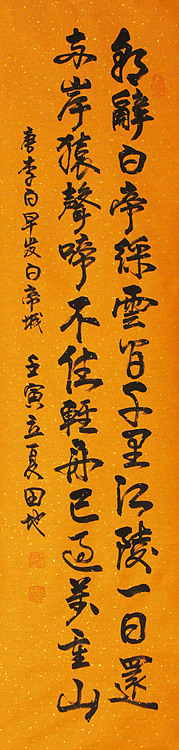 朝辭白帝綵雲間千里江陵一日還
兩岸猿聲啼不住輕舟已過萬重山
唐李白早发白帝城 壬寅立夏田地